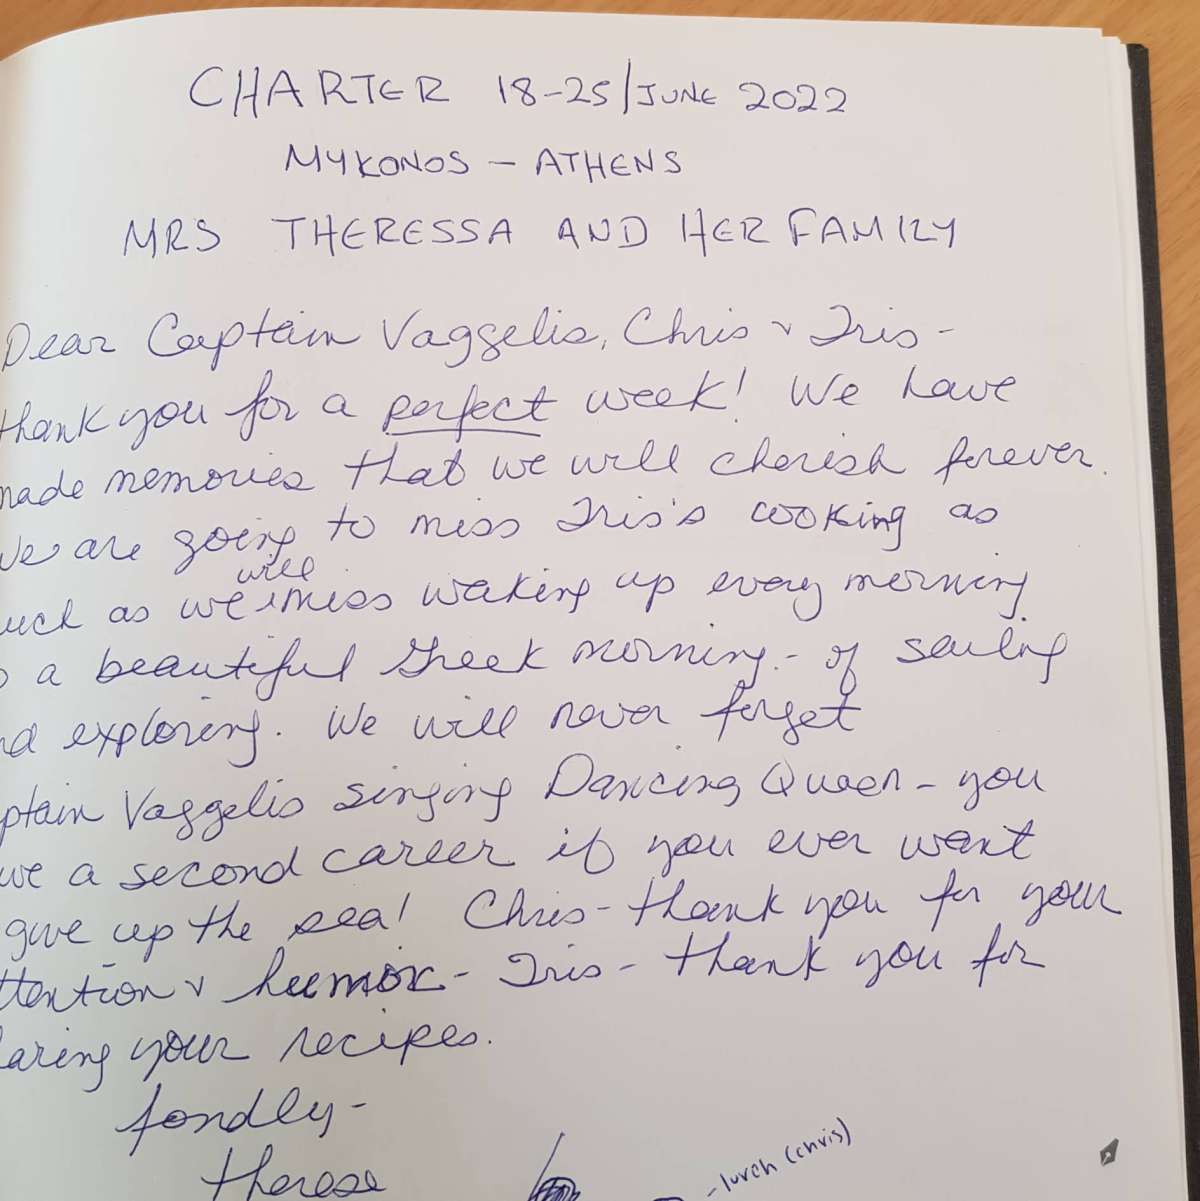 CHARTER 18-25/JUNE 2022
MYKONOS - ATHENS
MRS THERESSA AND HER FAMILY
Dear Captain Vaggelis, Chris & Iris -
thank you for a perfect week! We have
made memories that we will cherish forever.
We are going to miss Iris's cooking as
uch as we will miss waking up every morning
o a beautiful Greek morning - of sailing
nd exploring. We will never forget
ptain Vaggelis singing Dancing Queen - you
ve a second career if you ever want
give up the sea! Chris - thank you for your
ttention & humor - Iris - thank you for
aring your recipes.
fondly -
Therese
- lurch (chris)